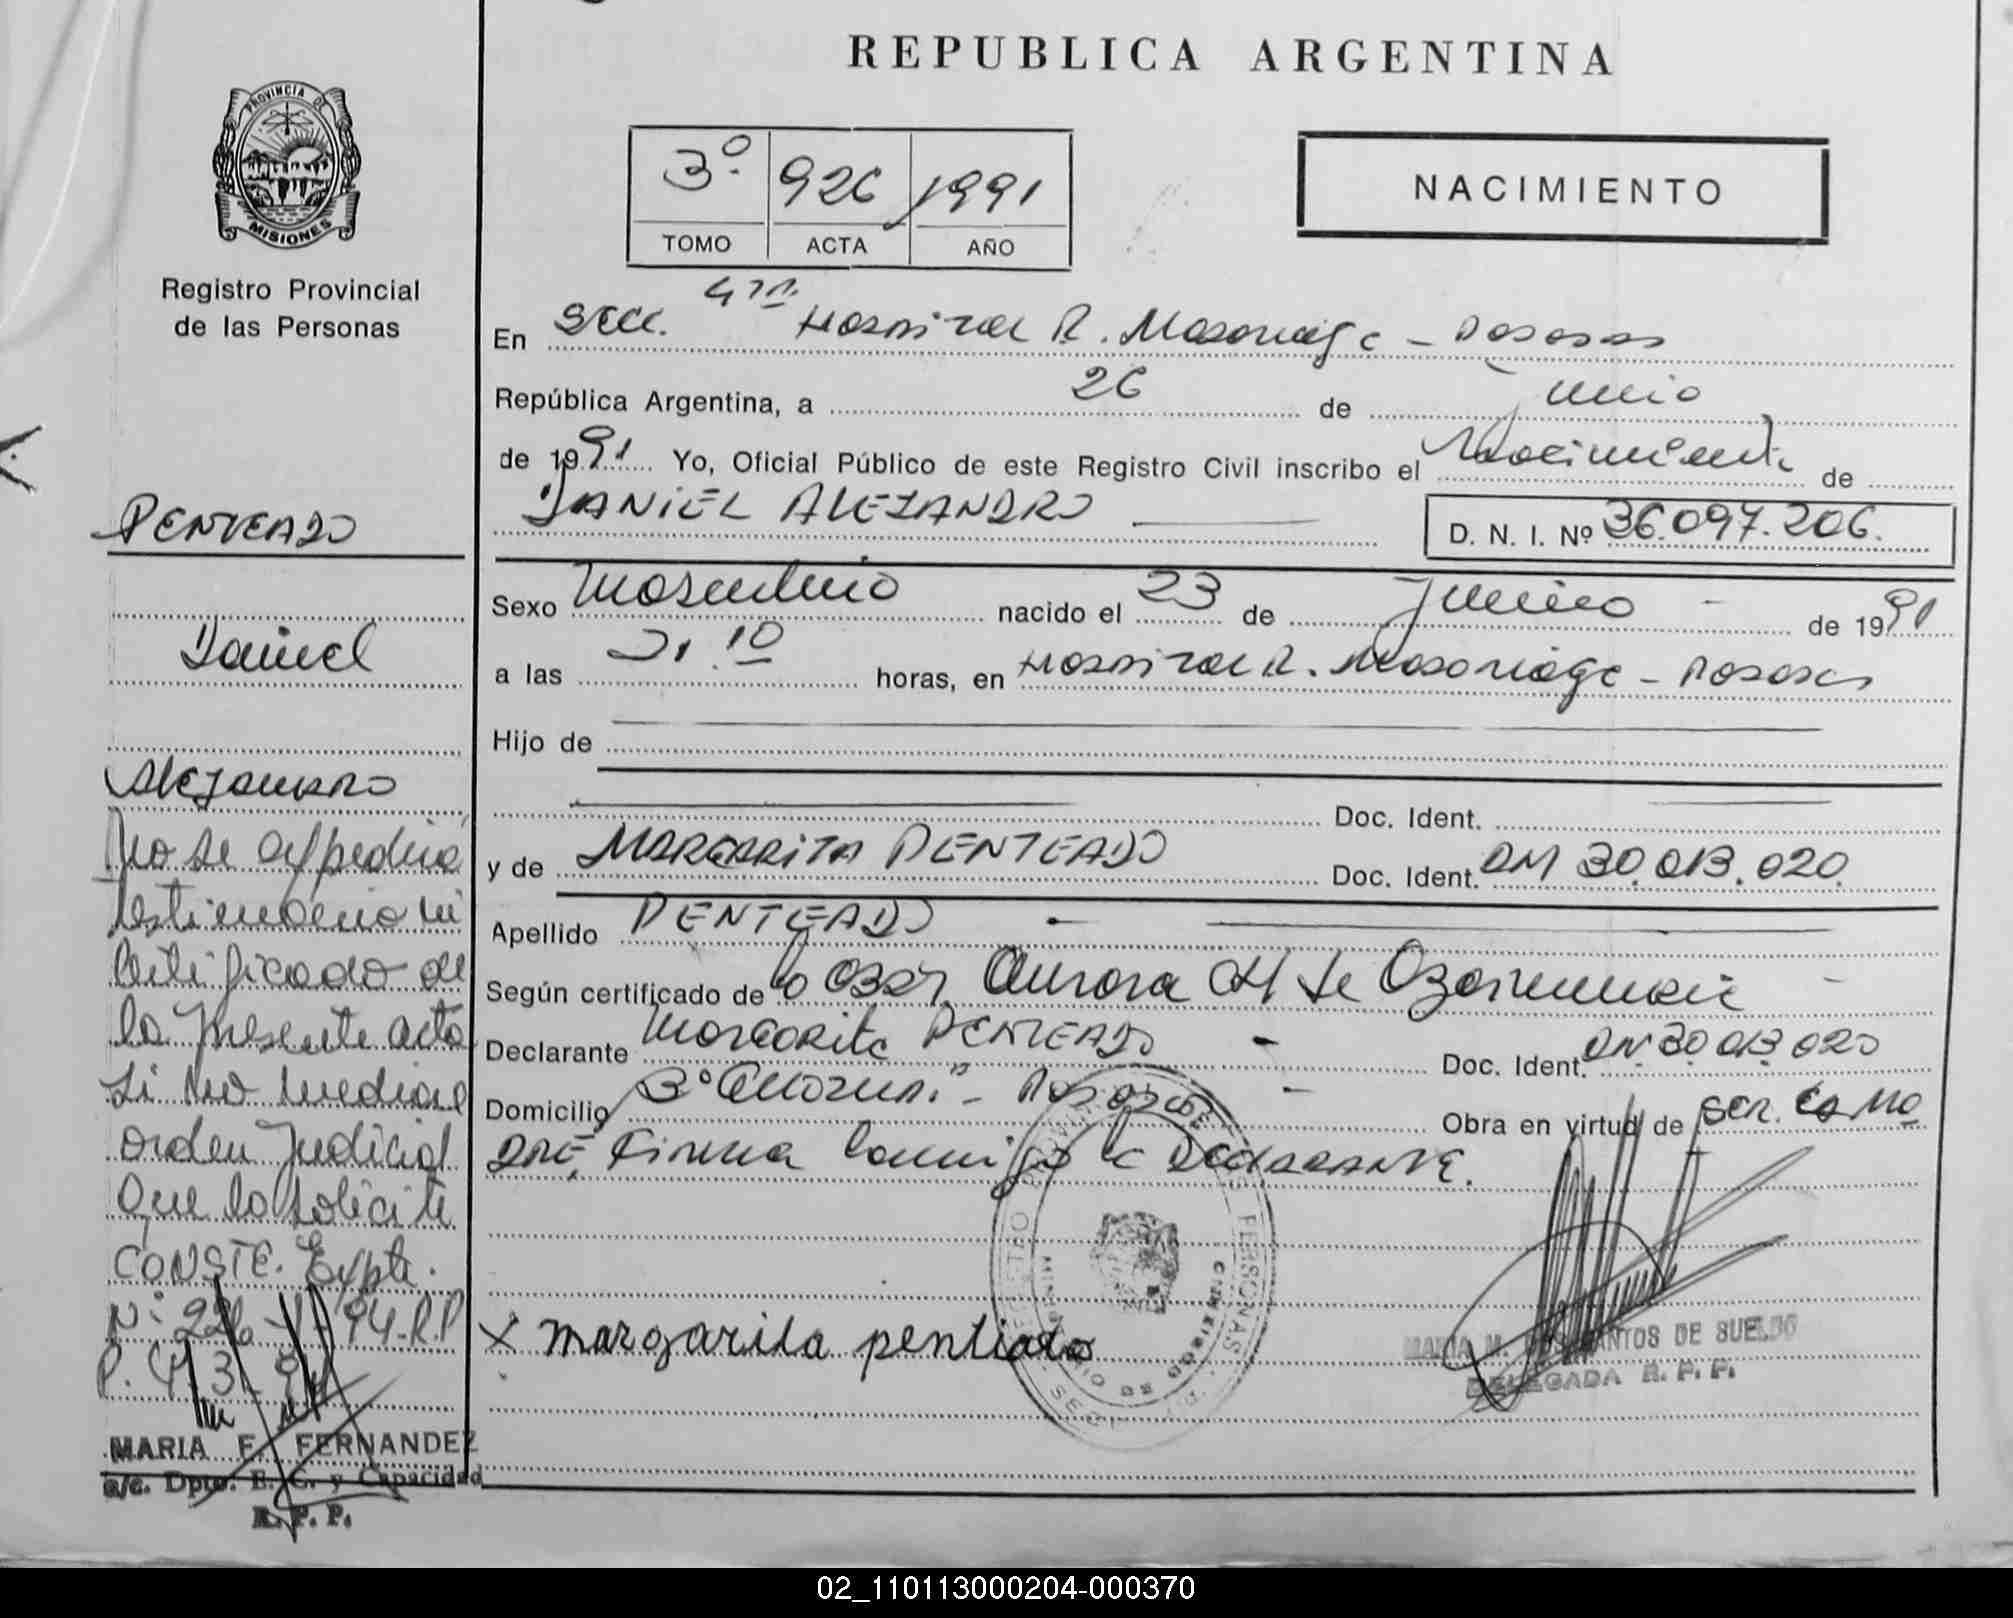 REPUBLICA ARGENTINA
PROVINCIA DE
MISIONES
Registro Provincial
de las Personas
3º 926 1991
TOMO ACTA AÑO
NACIMIENTO
En Secc. 4ta Hospital R. Madariaga - Posadas
República Argentina, a 26 de Junio
de 1991 Yo, Oficial Público de este Registro Civil inscribo el Nacimiento de
DANIEL ALEJANDRO D. N. I. Nº 36.097.206.
Sexo Masculino nacido el 23 de Junio - de 1991
a las 21.10 horas, en Hospital R. Madariaga - Posadas
Hijo de
Doc. Ident.
y de MARGARITA PENTEADO Doc. Ident. DM 30.013.020
Apellido PENTEADO -
Según certificado de la Obst. Aurora de
Declarante Margarita PENTEADO - Doc. Ident. DM 30 013 020
Domicilio - Posadas - Obra en virtud de ser la ma
dre, Firma conmigo la DECLARANTE.
x margarita pentiado
DELEGADA R. P. P.
PENTEADO
Daniel
Alejandro
No se expedirá
testimonio ni
certificado de
la presente acta
si no media
orden judicial
que lo solicite
CONSTE. Expte.
Nº 226 94-R.P
MARIA F. FERNANDEZ
a/c. Dpto. E. C. y Capacidad
R. P. P.
02_110113000204-000370